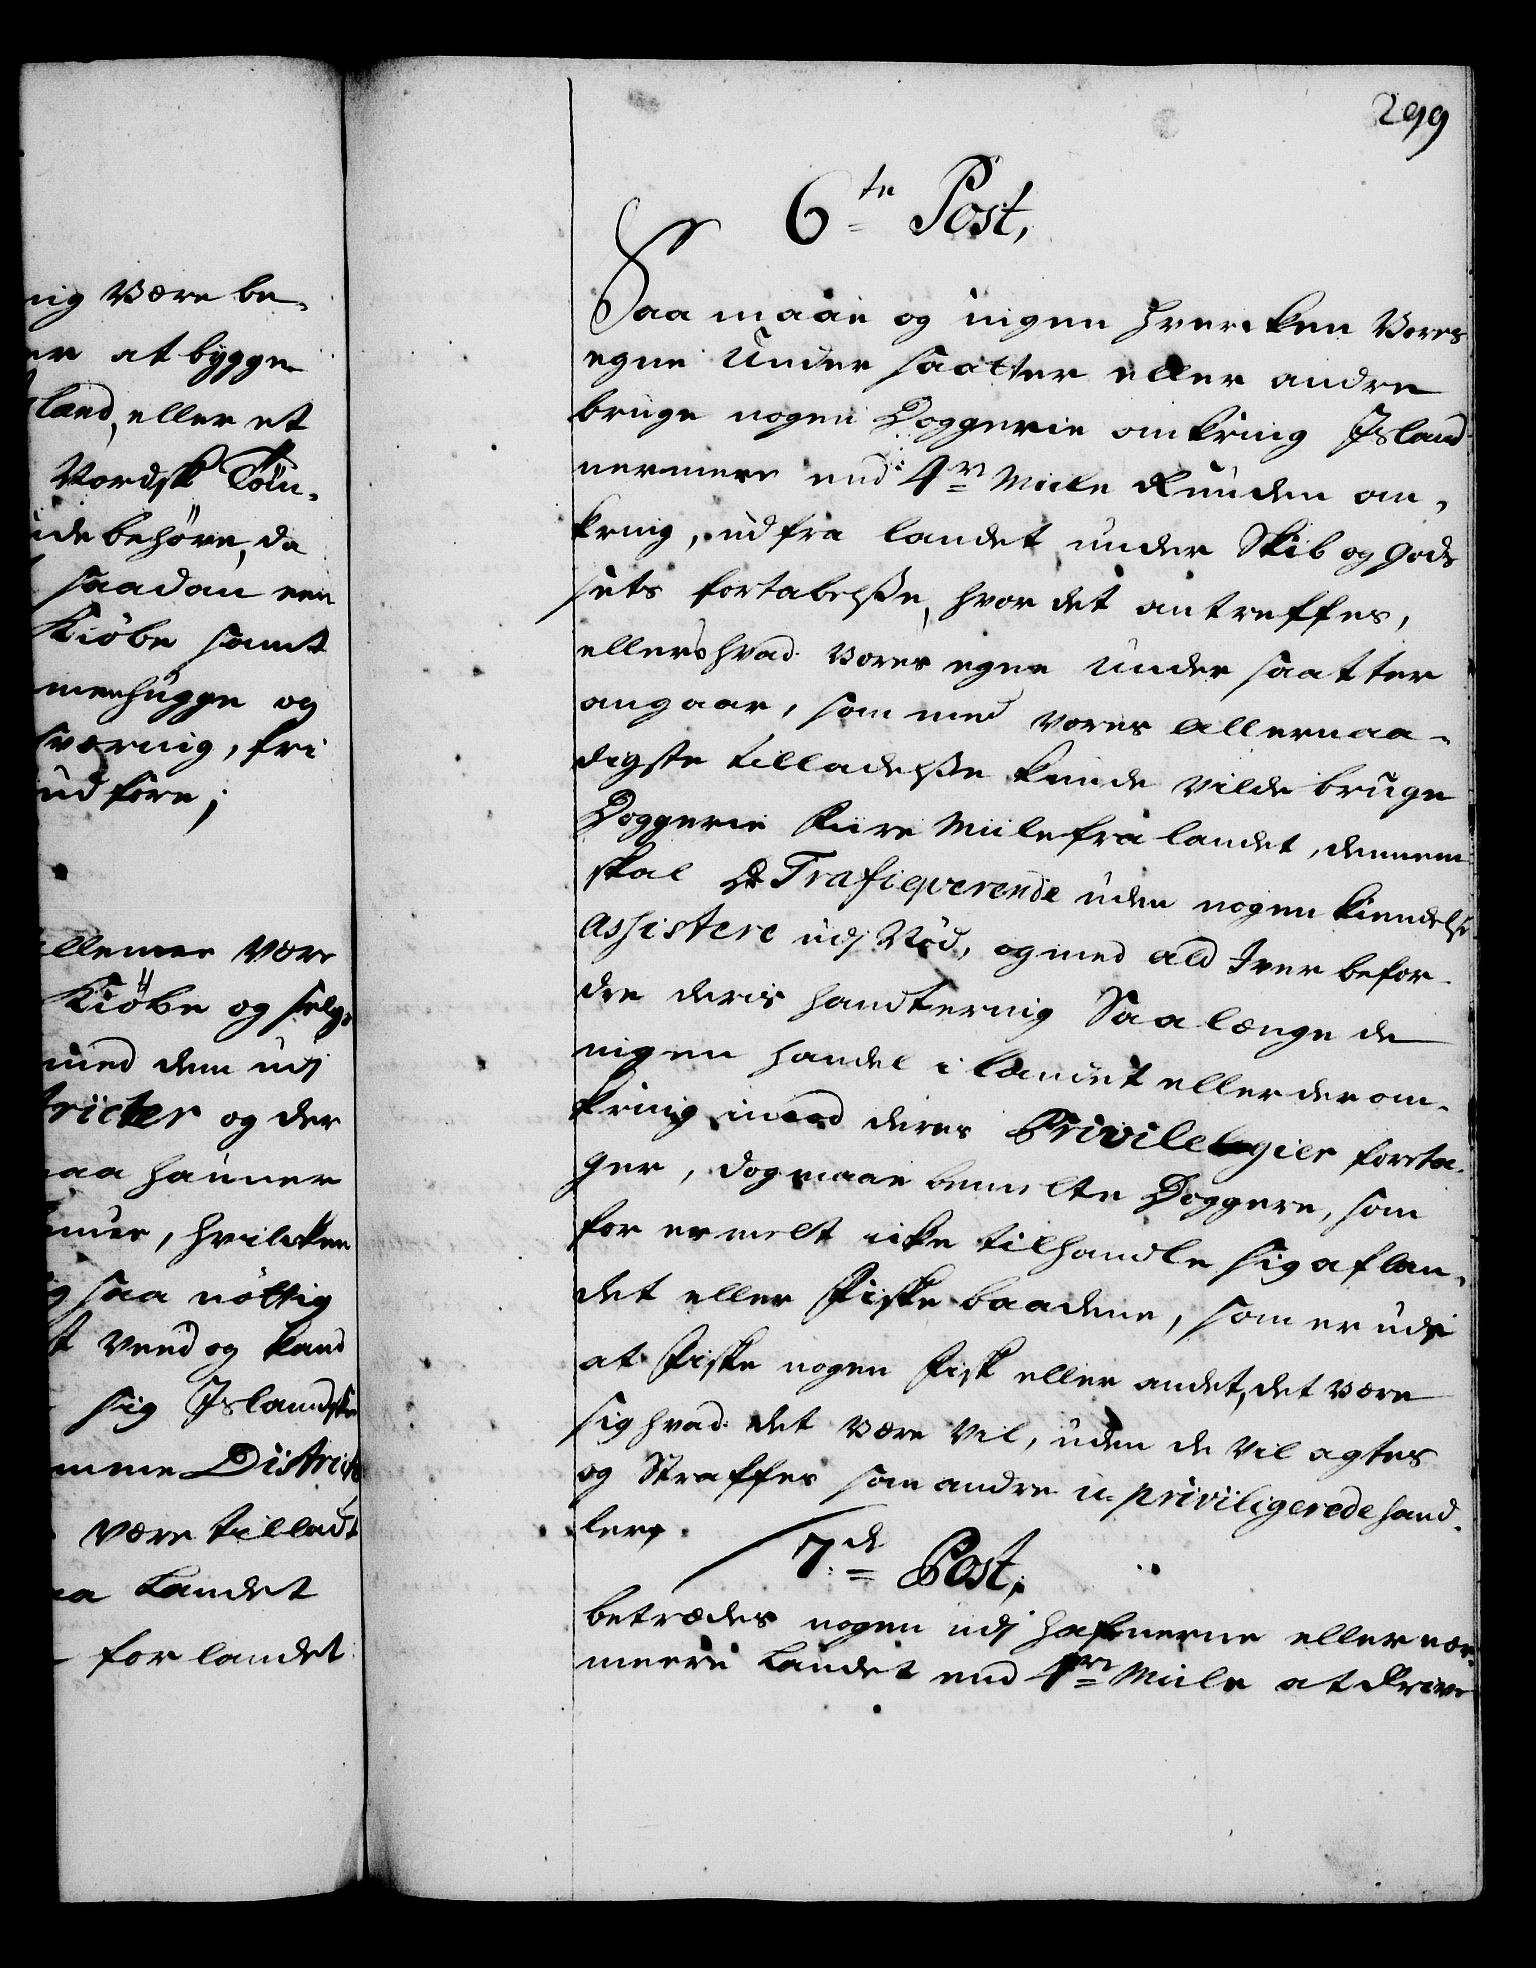 299
6te Post,
Saa maae og ingen hvercken Vores
egne Undersaatter eller andre
bruge nogen Doggerie omkring Island
nermere end 4re Miile Runden om-
kring, ud fra landet under Skib og gods
sets fortabelsse, hvor det antreffes,
ellers hvad Vores egne Undersaatter
angaar, som med vores allernaa-
digste tilladelsse kunde vilde bruge
Doggerie fiire Miile fra landet, dennem
skal de Trafiqverende uden nogen kiendelse
assistere udj Nöd, og med ald Iver befor-
dre deris handtering Saalænge de
ingen handel i landet eller der om-
kring imod deres Privilegier foreta-
ger, dog maae bemelte Doggere, som
for ermelt icke tilhandle sig af lan-
det eller fiske baadene, som er udj
at fiske nogen fisk eller andet, det være
sig hvad det være vil, uden de vil agtes
og Straffes som andre u-priviligerede hand-
lere.
7de Post,
betrædes nogen udj hafnerne eller nær-
meere Landet end 4re Miile at drive
ing være be-
er at bygge
land, eller et
Nordsk Töm-
ide behöve, da
saadan een
Kiöbe samt
merhugge og
sværing, fri
udföre;
llemer være
Kiöbe og selge
med dem udj
tricter og der
aa hauner
nuer, hvilcken
g saa nöttig
t veed og kand
sig Islandske
mme District
være tilladt
a Landet
for landet